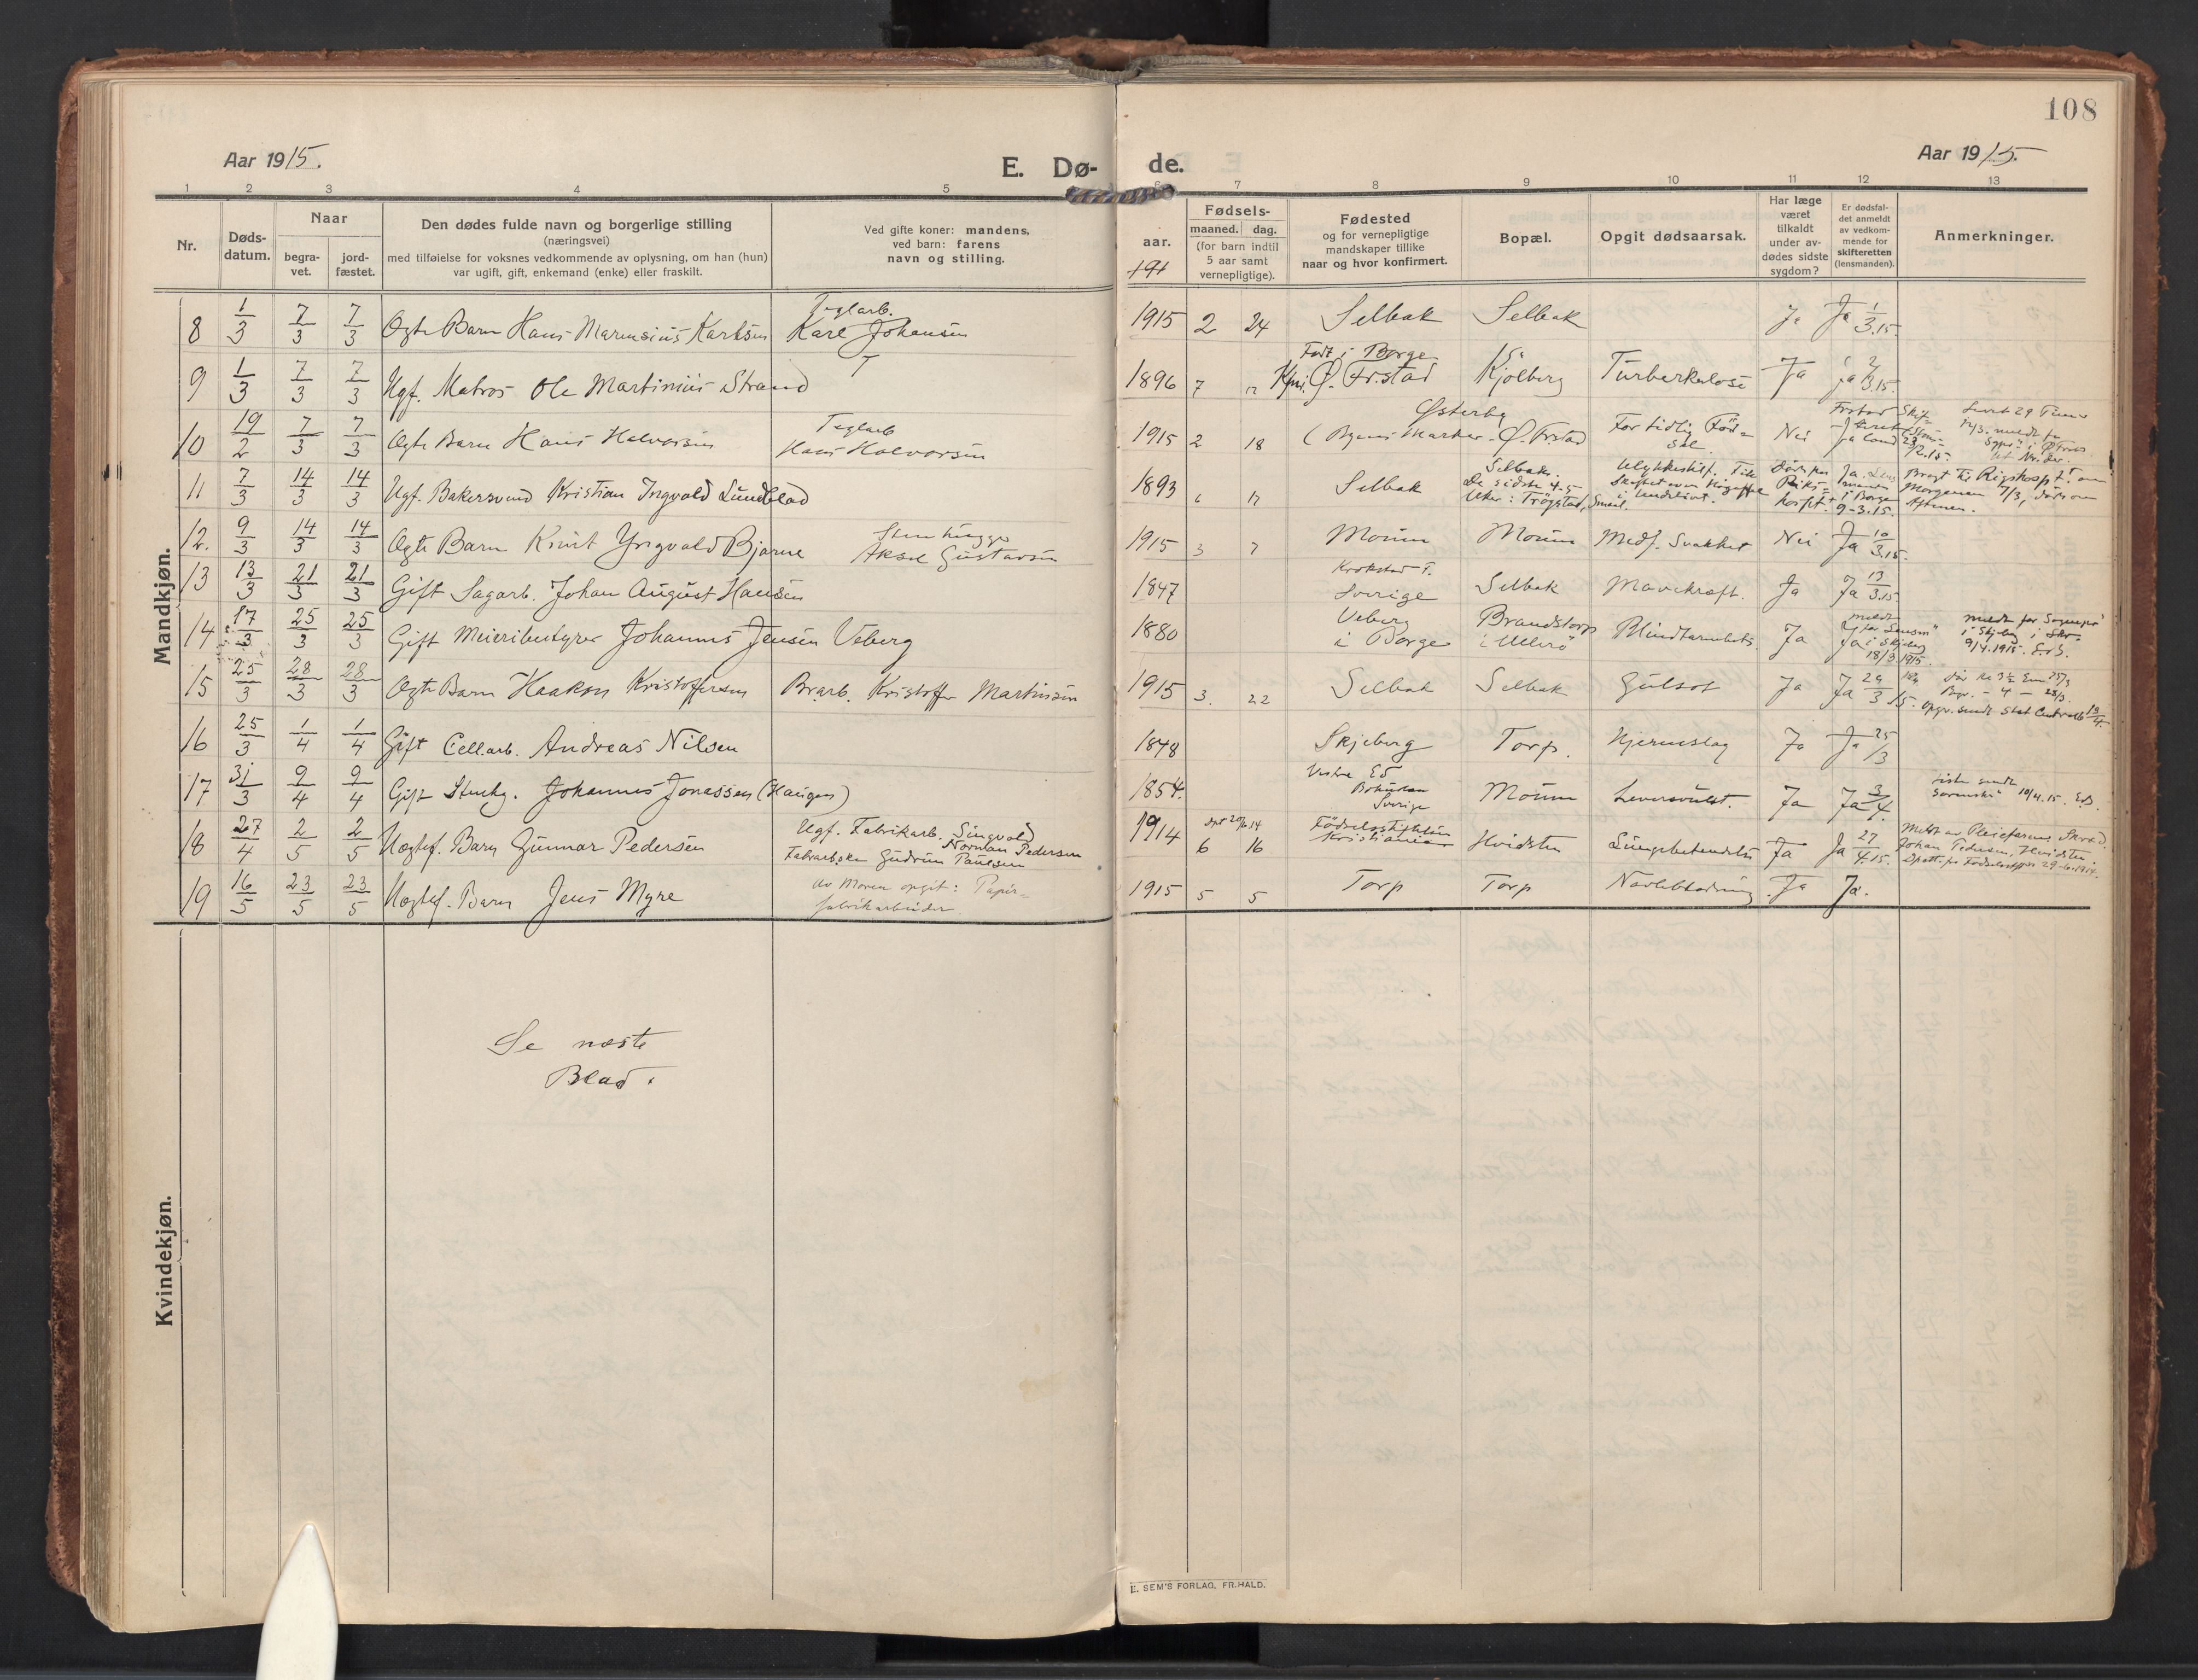 108
Aar 1915.
E. Dø-
de.
Aar 1915.
1 2 3 4 5 6 7 8 9 10 11 12 13
Nr.
Døds-
datum.
Naar
begra-
vet.
jord-
fæstet.
Den dødes fulde navn og borgerlige stilling
(næringsvei)
med tilføielse for voksnes vedkommende av oplysning, om han (hun)
var ugift, gift, enkemand (enke) eller fraskilt.
Ved gifte koner: mandens,
ved barn: farens
navn og stilling.
Fødsels-
aar.
191
maaned. dag.
(for barn indtil
5 aar samt
vernepligtige).
Fødested
og for vernepligtige
mandskaper tillike
naar og hvor konfirmert.
Bopæl.
Opgit dødsaarsak.
Har læge
været
tilkaldt
under av-
dødes sidste
sygdom?
Er dødsfal-
det anmeldt
av vedkom-
mende for
skifteretten
(lensmanden).
Anmerkninger.
Mandkjøn.
8 1/3 7/3 7/3 Ægte Barn Hans Marensius Karlsen
Teglarb.
Karl Johansen
1915 2 24 Selbak Selbak Ja Ja 1/3.15.
9 1/3 7/3 7/3 Ugf. Matros Ole Martinius Strand
1896 7 12
Født i Borge
Kfm. Ø. Fr.stad
Kjølberg Turberkulose Ja Ja 2/3.15.
10 19/2 7/3 7/3 Ægte Barn Hans Halvorsen
Teglarb
Hans Halvorsen
1915 2 18
Østerby
(Byens Marker - Ø. Frstad
For tidlig Fød=
sel.
Nei Ja
11 7/3 14/3 14/3 Ugf. Bakersvend Kristian Ingvald Lundblad
1893 6 17 Selbak
Selbak.
De sidste 4-5
Uker: Trøgstad,
Ulykkestilf.
i Underlivet.
Ja
i Borge
9-3.15.
Bragt til Rigshospt. om
Morgenen 7/3, døde om
Aftenen.
12. 9/3 14/3 14/3 Ægte Barn Knut Yngvald Bjarne
Stenhugger
Aksel Gustavsen
1915 3 7 Moum Moum Medf. Svakhet Nei Ja 10/3.15.
13 13/3 21/3 21/3 Gift Sagarb. Johan August Hansen
1847
Krokstad
Sverige
Selbak Mavekræft. Ja Ja 13/3.15.
14 17/3 25/3 25/3 Gift Meieribestyrer Johannes Jensen Veberg
1880
Veberg
i Borge
Brandstorp
i Ullerø
Blindtarmbet. Ja
meldt
for Lensm.
Ja i Skjeberg
18/3 1915.
meldt for Sogneprs
i Skjeberg
9/4.1915.
15 25/3 28/3 28/3 Ægte Barn Haakon Kristoffersen Br.arb. Kristoffer Martinsen
1915 3. 22 Selbak Selbak Gulsot Ja Ja 29/3 15.
16 25/3 1/4 1/4 Gift Cell.arb. Andreas Nilsen
1848 Skjeberg Torp. Hjerneslag Ja Ja 25/3
17 31/3 9/4 9/4 Gift Stenhg. Johannes Jonassen (Haugen)
1854.
Vestre Ed
Bohuslen
Sverige
Moum Leversvulst. Ja Ja 3/4.
10/4.15.
18 27/4 2/5 2/5 Uægtef. Barn Gunnar Pedersen
Ugf. Fabrikarb. Singvald
Norman Pedersen
Fabrarbske Gudrun Paulsen
1914 6 16
Fødselsstiftelsen
Kristiania
Hvidsten Lungebetendelse Ja Ja 27/4.15.
Meldt av Pleiefaren,
Johan Pedersen, Hvidsten.
19 16/5 23/5 23/5 Uægtef. Barn Jens Myre
Av Moren opgit: Papir=
fabrikarbeider
1915 5 5 Torp Torp Navleblødning. Ja Ja.
Kvindekjøn.
Se næste
Blad.
E. SEM'S FORLAG, FR.HALD.